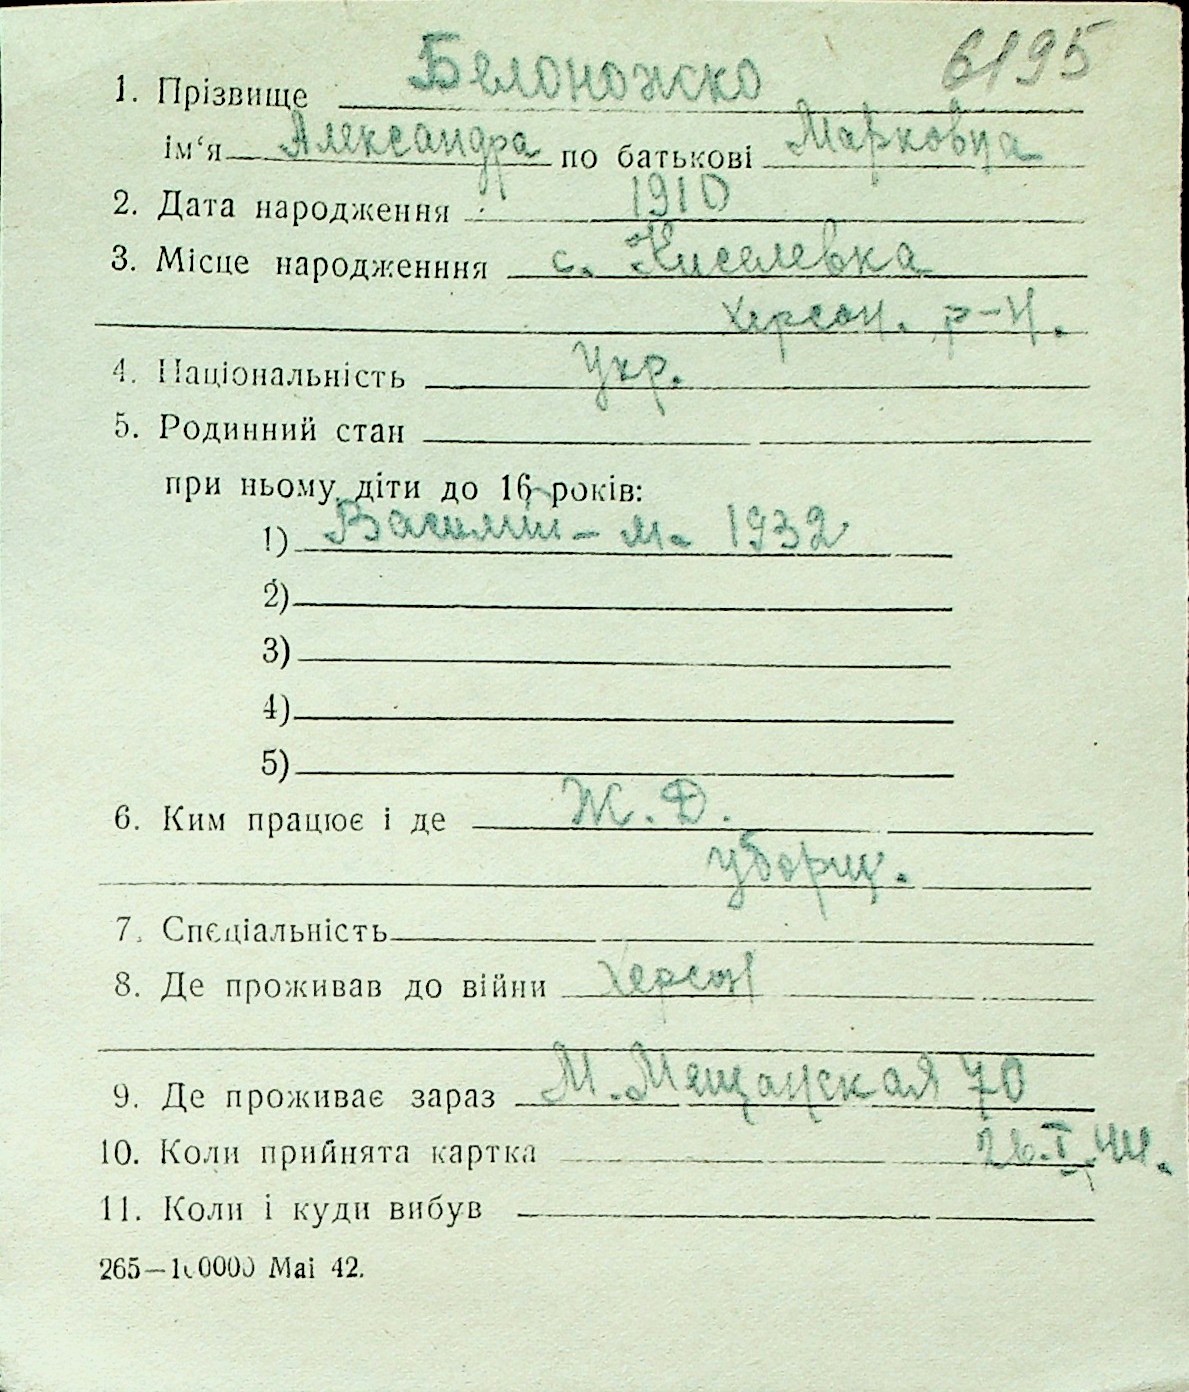 6195
1. Прізвище Белоножско
ім‘я Александра по батькові Марковна
2. Дата народження 1910
3. Місце народженння с. Киселевка
Херсон. р-н.
4. Національність Укр.
5. Родинний стан
при ньому діти до 16 років:
1) Василий - м. 1932
2)
3)
4)
5)
6. Ким працює і де Ж. Д.
уборщ.
7. Спєціальність
8. Де проживав до війни Херсон
9. Де проживає зараз М. Мещанская 70
10. Коли прийнята картка 26.I.44.
11. Коли і куди вибув
265—100000 Mai 42.